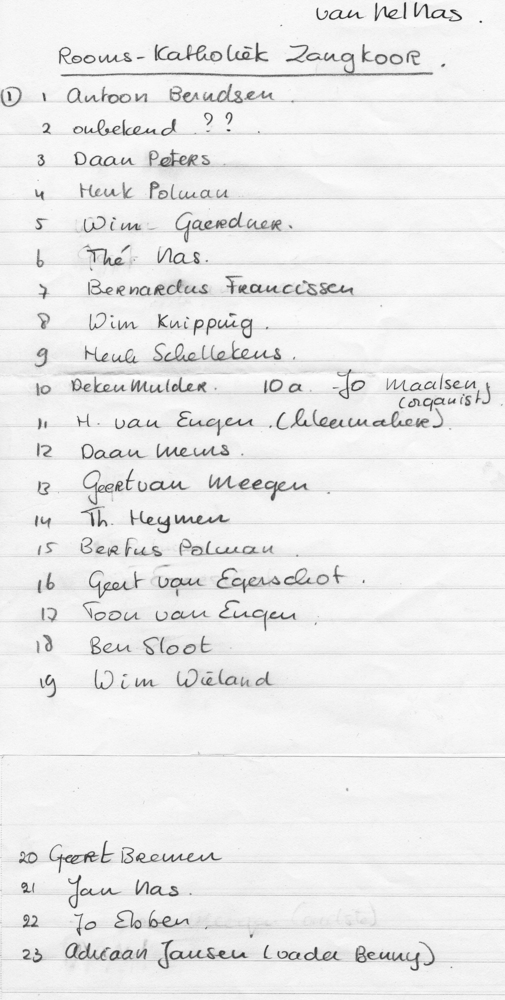 van Nel Nas.
Rooms-Katholiek Zangkoor.
① 1 Antoon Berndsen.
2 onbekend ??.
3 Daan Peters
4 Henk Polman
5 Wim Gaerdner.
6 Thé Nas.
7 Bernardus Francissen
8 Wim Knipping.
9 Henk Schellekens.
10 Deken Mulder. 10a. Jo Maalsen
(organist).
11 H. van Engen. (kleermaker).
12 Daan Mems.
13 Geert van Meegen.
14 Th. Heymen
15 Bertus Polman.
16 Geert van Egerschot.
17 Toon van Engen.
18 Ben Sloot
19 Wim Wieland
20 Geert Bremen
21 Jan Nas.
22 Jo Ebben.
23 Adriaan Jansen (vader Benny)